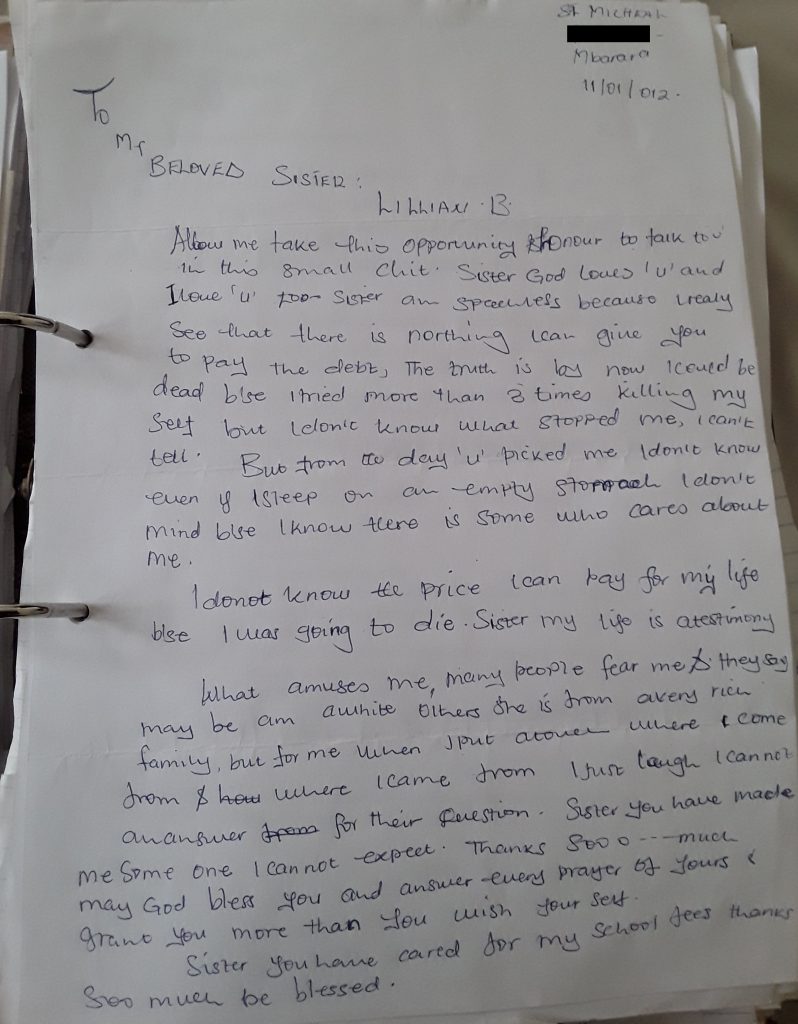 St MICHEAL
Mbarara
11/01/012.
To
My
BELOVED SISTER:
LILLIAN .B.
Allow me take this opportunity & honour to talk to u
in this small chit. Sister God loves 'u' and
I love 'u' too Sister am speechless because i realy
See that there is northing i can give you
to pay the debt, The truth is by now I could be
dead b'se I tried more than 3 times killing my
self but I don't know what stopped me, i can't
tell. But from the day 'u' picked me I don't know
even if I sleep on an empty stomach I don't
mind b'se I know there is some who cares about
me.
I donot know the price i can pay for my life
b'se I was going to die. Sister my life is atestimony
What amuses me, many people fear me & they say
may be am awhite Others she is from avery rich
family, but for me when I put atouch where I come
from & how where I came from I just laugh I cannot
an answer from for their Question. Sister you have made
me Some one I cannot expect. Thanks Sooo --- much
may God bless you and answer every prayer of yours &
grant you more than you wish your self.
Sister you have cared for my school fees thanks
Soo much be blessed.